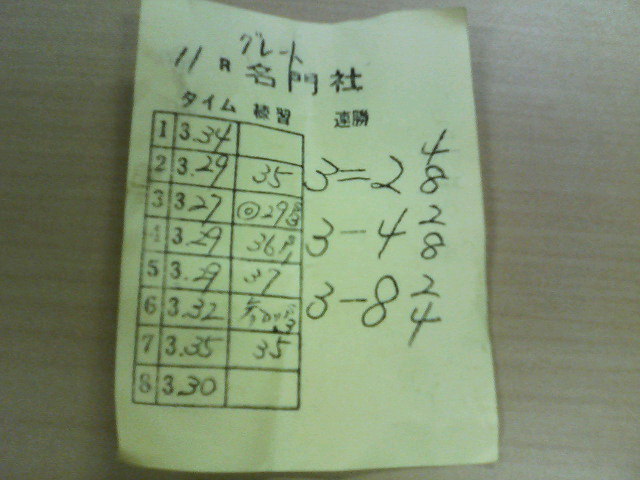 グレート
11R 名門社
タイム 練習 連勝
1 3.34
2 3.29 35 3=2 4/8
3 3.27 ◎29
4 3.29 36 3-4 2/8
5 3.29 37
6 3.32 3-8 2/4
7 3.35 35
8 3.30